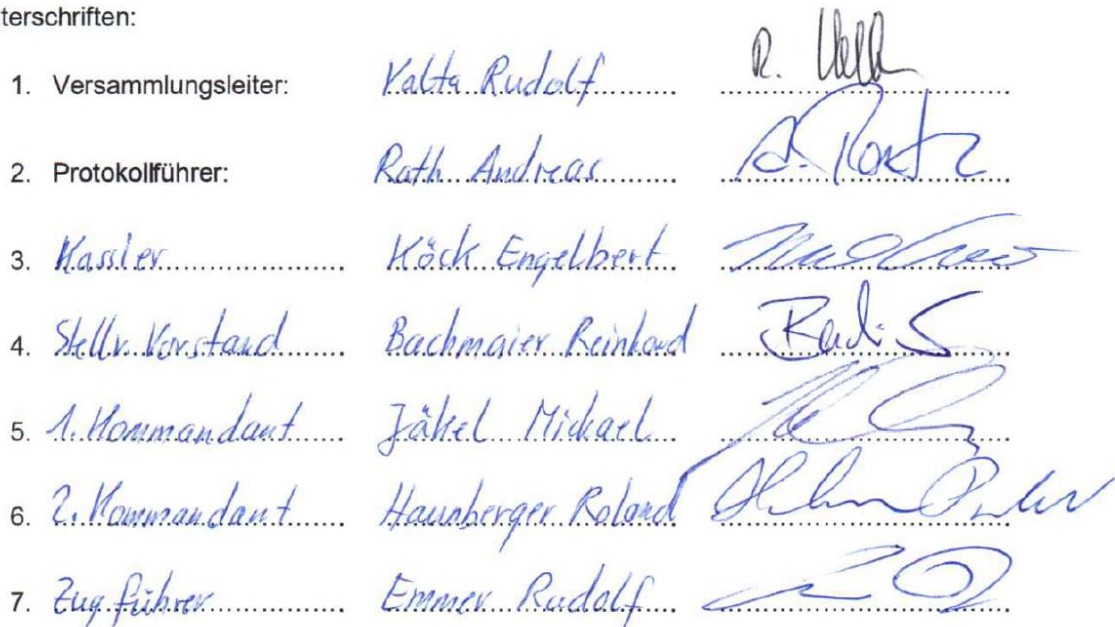 terschriften:
1. Versammlungsleiter: Valta Rudolf R.
2. Protokollführer: Rath Andreas
3. Kassier Köck Engelbert
4. Stellv. Vorstand Bachmaier Reinhard
5. 1. Kommandant Jäkel Michael
6. 2. Kommandant Haunberger Roland
7. Zugführer Emmer Rudolf